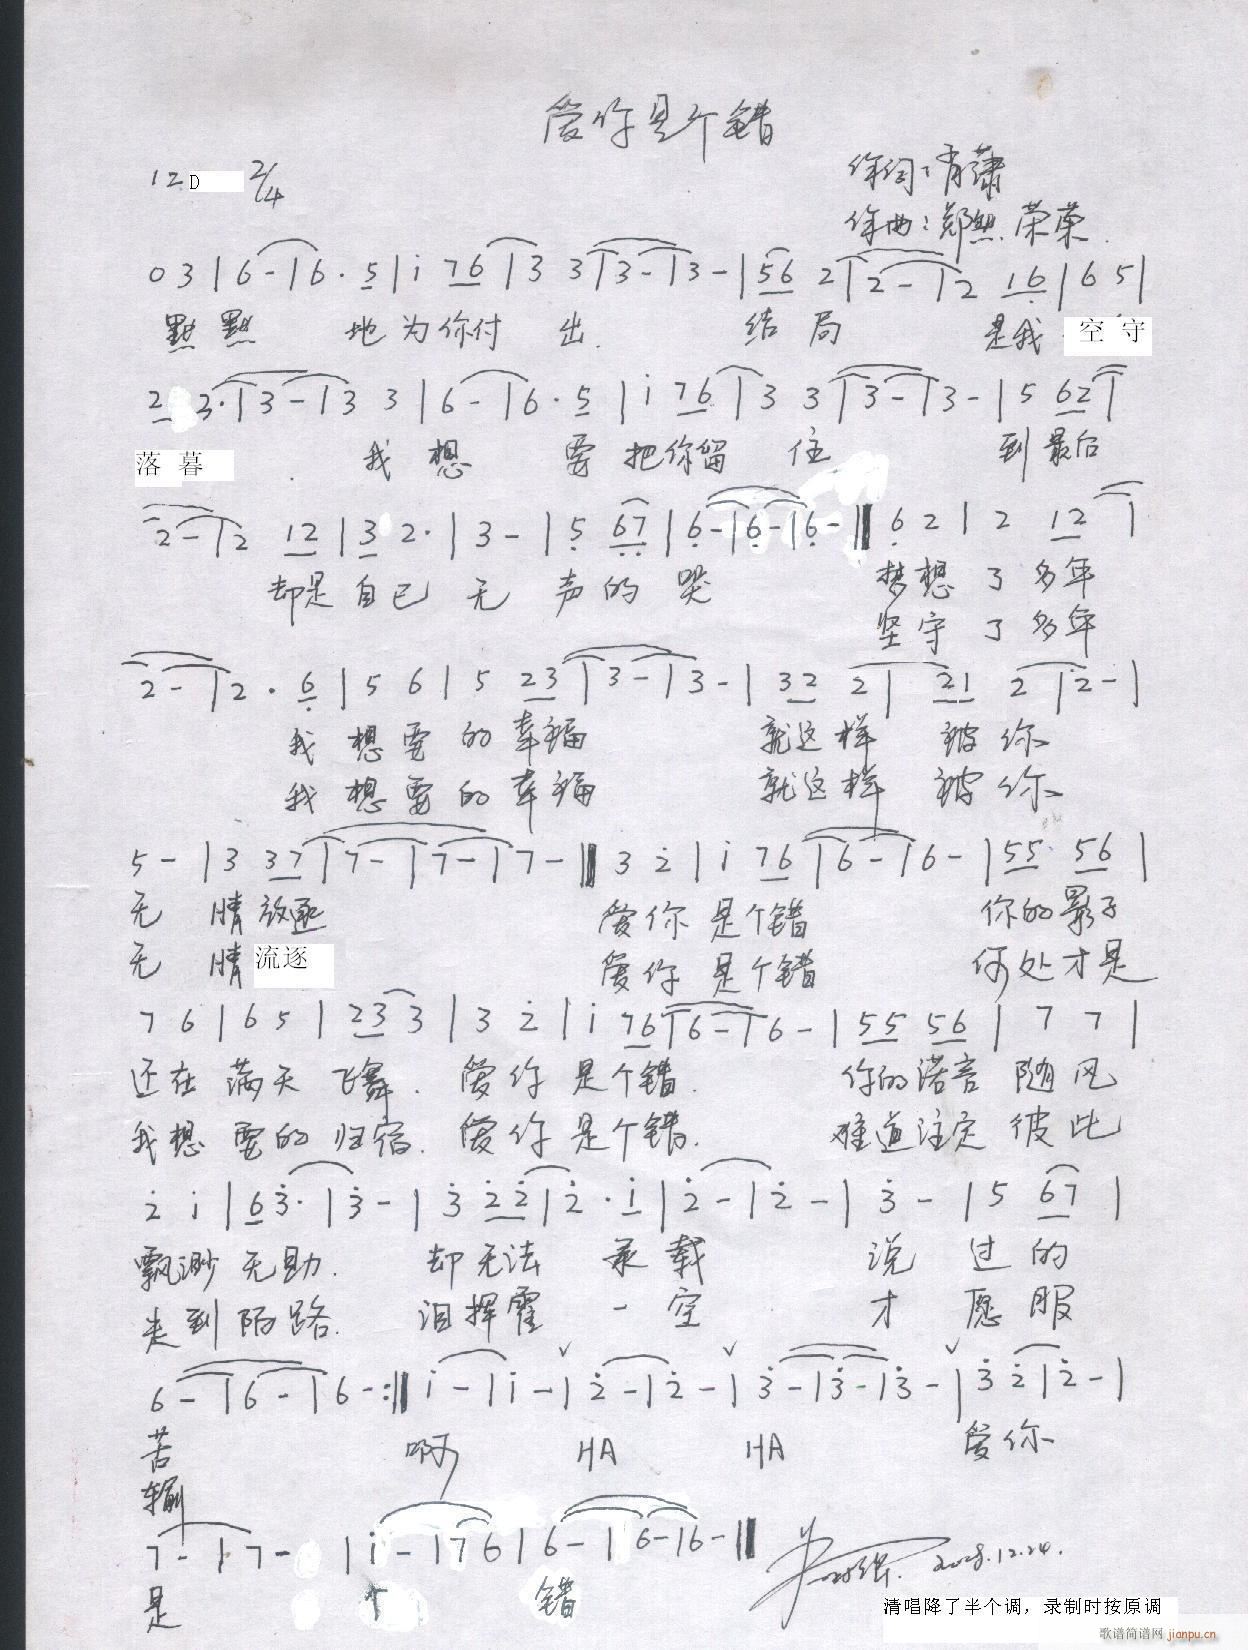 爱你是个错
1=D 2/4
作词：肖萧
作曲：郑然 荣荣
0 3 | 6 - | 6 · 5 | i 76 | 3 3 | 3 - | 3 - | 56 2 | 2 - | 2 16 | 6 5 |
默默 地为你付出 结局 是我 空守
2 3· | 3 - | 3 3 | 6 - | 6 · 5 | i 76 | 3 3 | 3 - | 3 - | 5 62 |
落暮 我想 要把你留住 到最后
2 - | 2 12 | 3 2· | 3 - | 5 67 | 6 - | 6 - | 6 - || 6 2 | 2 12 |
却是自己无声的哭 梦想了多年
坚守了多年
2 - | 2 · 6 | 5 6 | 5 23 | 3 - | 3 - | 32 2 | 21 2 | 2 - |
我想要的幸福 就这样被你
我想要的幸福 就这样被你
5 - | 3 37 | 7 - | 7 - | 7 - || 3 2 | i 76 | 6 - | 6 - | 55 56 |
无情放逐 爱你是个错 你的影子
无情流逐 爱你是个错 何处才是
7 6 | 6 5 | 23 3 | 3 2 | i 76 | 6 - | 6 - | 55 56 | 7 7 |
还在满天飞舞. 爱你是个错. 你的诺言随风
我想要的归宿. 爱你是个错. 难道注定彼此
2 i | 6 3· | 3 - | 3 22 | 2 · i | 2 - | 2 - | 3 - | 5 67 |
飘渺无助. 却无法承载 说过的
走到陌路. 泪挥霍一空 才愿服
6 - | 6 - | 6 - :|| i - | i - | 2 - | 2 - | 3 - | 3 - | 3 - | 3 2 | 2 - |
苦 啊 HA HA 爱你
输
7 - | 7 - | i - | 7 6 | 6 - | 6 - | 6 - ||
是 个 错
2008.12.24.
清唱降了半个调，录制时按原调
歌谱简谱网 jianpu.cn